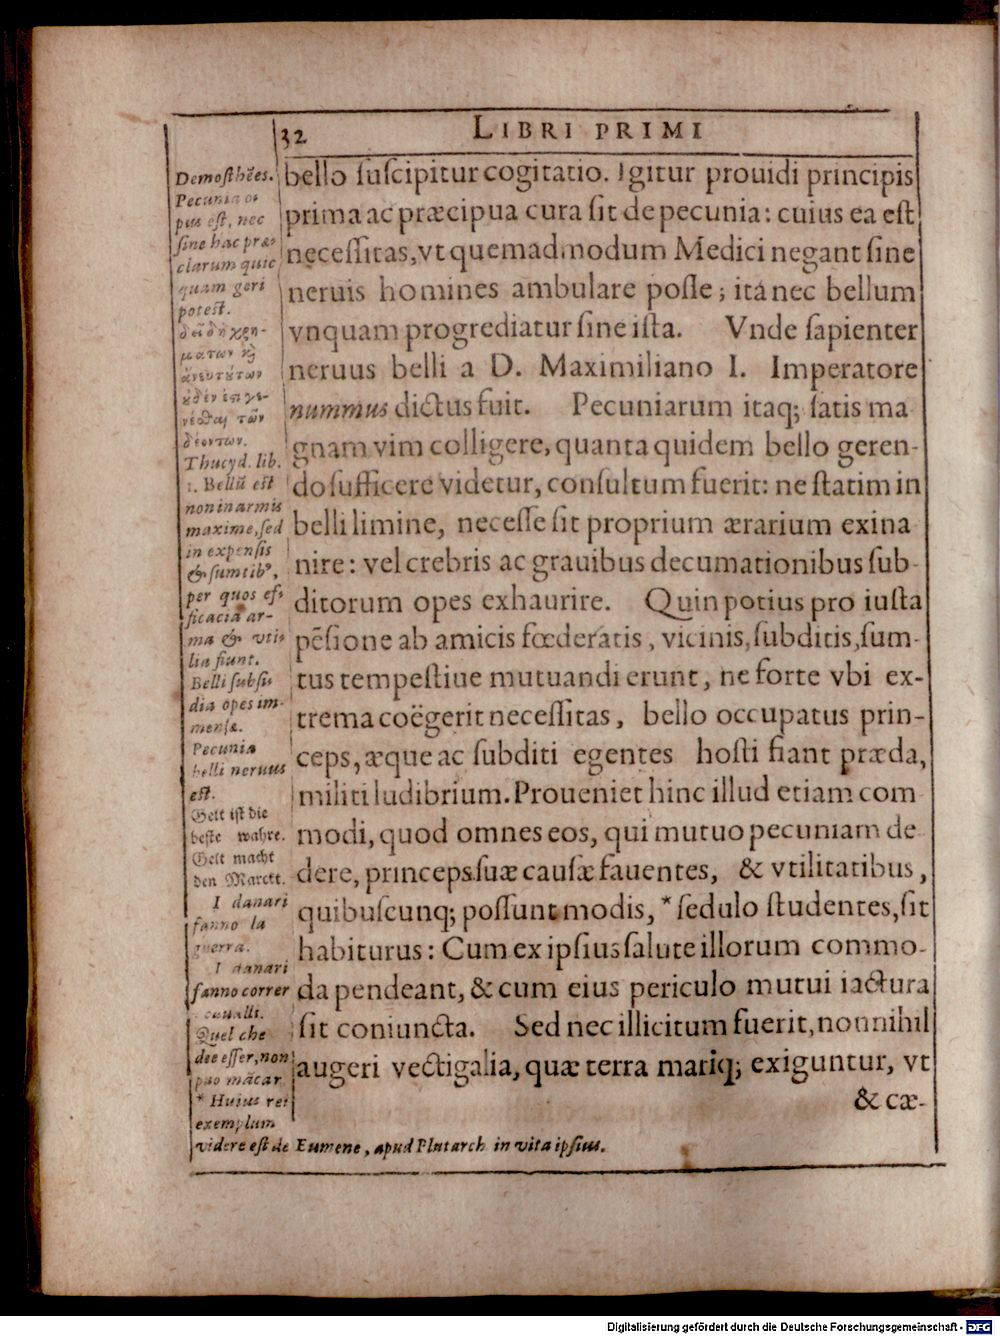 32
LIBRI PRIMI
bello ſuſcipitur cogitatio. Igitur prouidi principis
prima ac præcipua cura ſit de pecunia: cuius ea eſt
neceſſitas, vt quemadmodum Medici negant ſine
neruis homines ambulare poſſe; ità nec bellum
vnquam progrediatur ſine iſta. Vnde ſapienter
neruus belli a D. Maximiliano I. Imperatore
nummus dictus fuit. Pecuniarum itaq; ſatis ma
gnam vim colligere, quanta quidem bello geren-
do ſufficere videtur, conſultum fuerit: ne ſtatim in
belli limine, neceſſe ſit proprium ærarium exina
nire: vel crebris ac grauibus decumationibus ſub-
ditorum opes exhaurire. Quin potius pro iuſta
pẽſione ab amicis fœderatis, vicinis, ſubditis, ſum-
tus tempeſtiue mutuandi erunt, ne forte vbi ex-
trema coëgerit neceſſitas, bello occupatus prin-
ceps, æque ac ſubditi egentes hoſti fiant præda,
militi ludibrium. Proueniet hinc illud etiam com
modi, quod omnes eos, qui mutuo pecuniam de
dere, princeps ſuæ cauſæ fauentes, & vtilitatibus,
quibuſcunq; poſſunt modis, * ſedulo ſtudentes, ſit
habiturus: Cum ex ipſius ſalute illorum commo-
da pendeant, & cum eius periculo mutui iactura
ſit coniuncta. Sed nec illicitum fuerit, nonnihil
augeri vectigalia, quæ terra mariq; exiguntur, vt
& cæ-
Demoſthẽes.
Pecunia o-
pus eſt, nec
ſine hac præ-
clarum quic
quam geri
poteſt.
δεῖ δὴ χρη-
μάτων καὶ
ἄνευ τούτων
οὐδὲν ἔςι γε-
νέσθαι τῶν
δεόντων.
Thucyd. lib.
1. Bellũ est
non in armis
maxime, ſed
in expenſis
& ſumtibꝰ,
per quos ef-
ficacia ar-
ma & vti-
lia fiunt.
Belli ſubſi-
dia opes im-
menſæ.
Pecunia
belli neruus
eſt.
Gelt iſt die
beſte wahre.
Gelt macht
den Marckt.
I danari
fanno la
guerra.
I danari
fanno correr
caualli.
Quel che
dee eſſer, non
puo mãcar.
* Huius rei
exemplum
videre eſt de Eumene, apud Plutarch in vita ipſius.
Digitalisierung gefördert durch die Deutsche Forschungsgemeinschaft - DFG